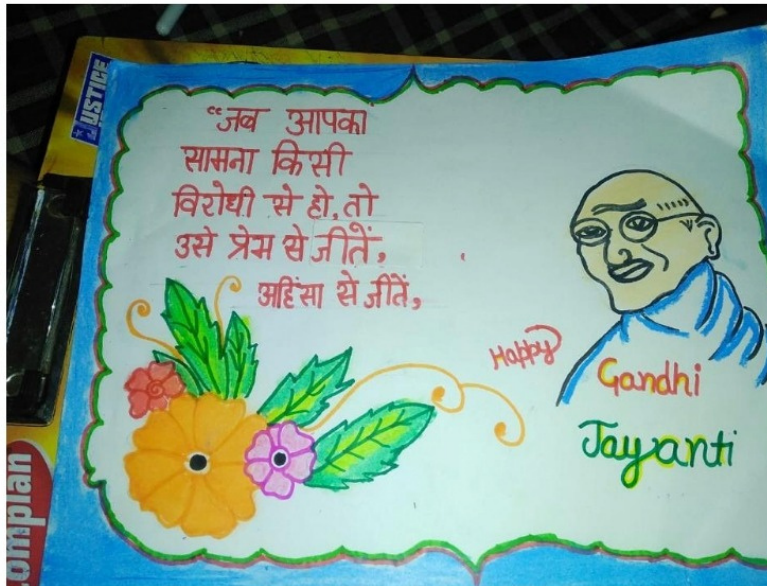 USTICE
“जब आपका
सामना किसी
विरोधी से हो, तो
उसे प्रेम से जीतें,
अहिंसा से जीतें,
Happy
Gandhi
Jayanti
omplan